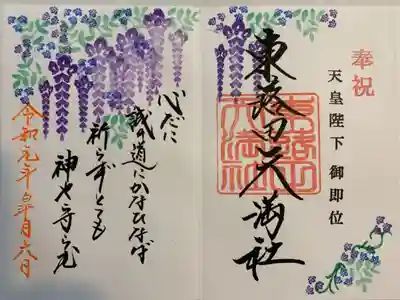 奉祝
天皇陛下 御即位
東蕗田天満社
東蕗田天満社
心だに
誠の道にかなひなば
祈らずとても
神や守らむ
令和元年皐月六日